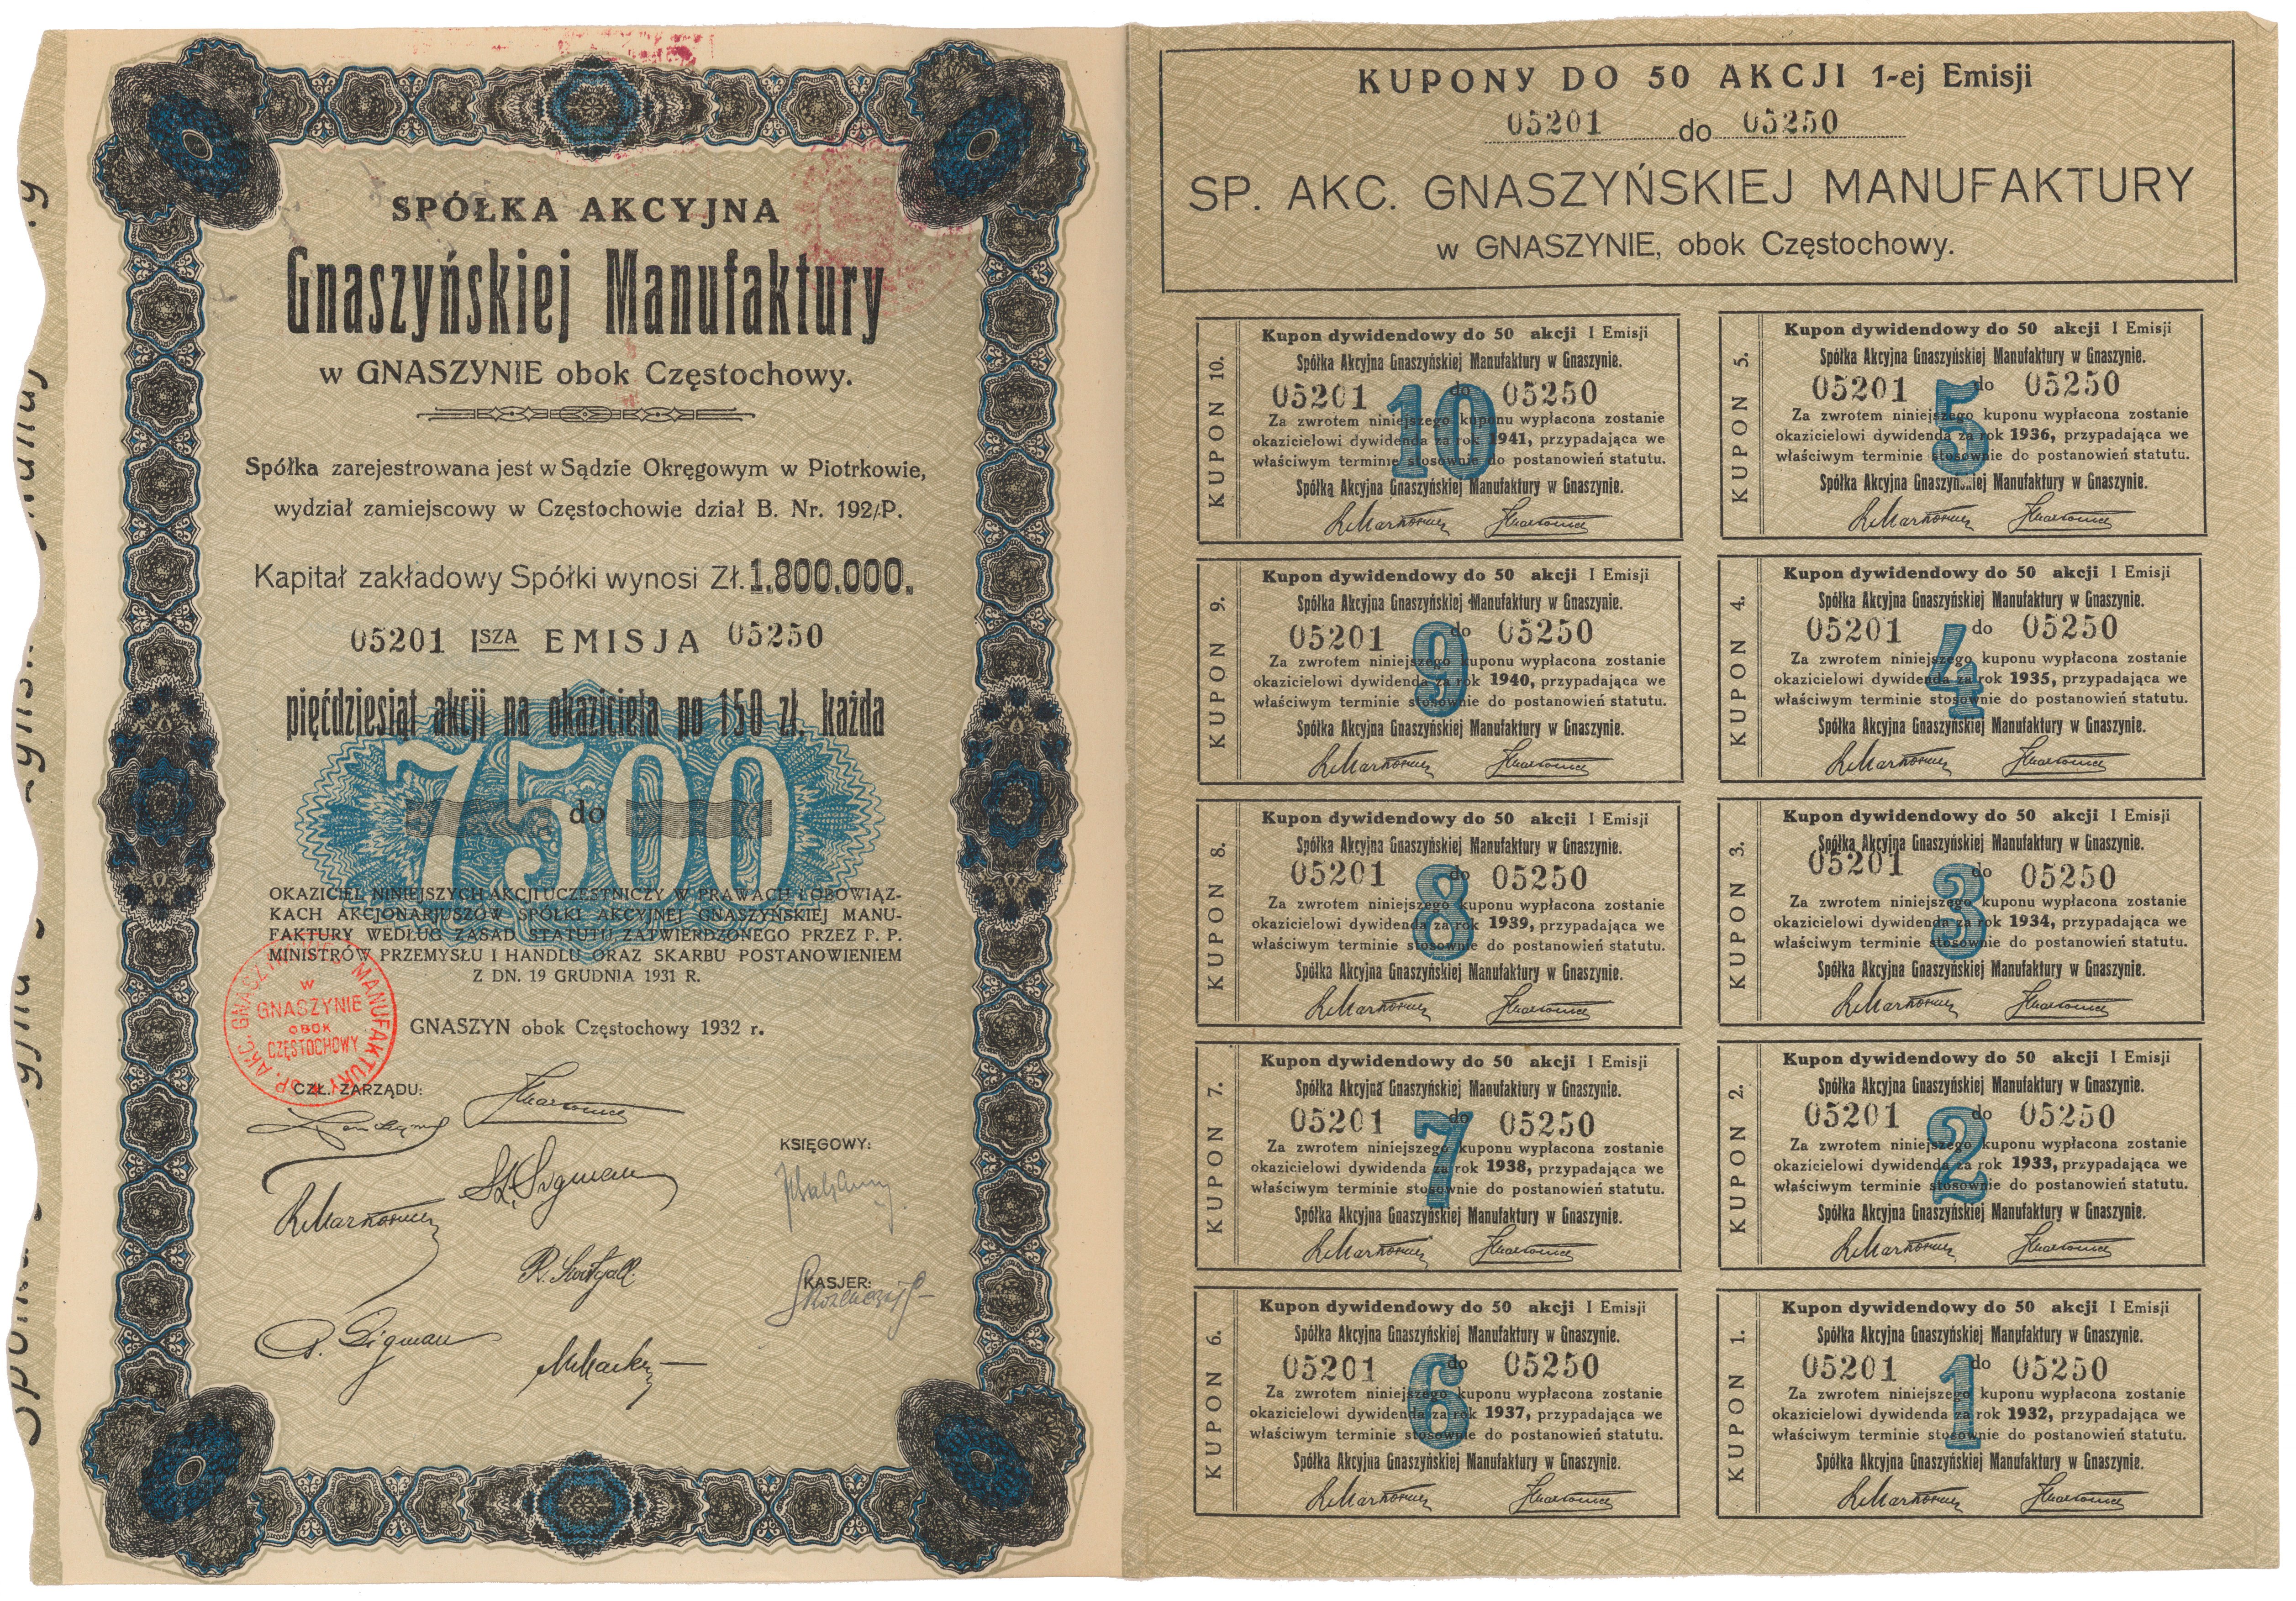 SPÓŁKA AKCYJNA
Gnaszyńskiej Manufaktury
w GNASZYNIE obok Częstochowy.
Spółka zarejestrowana jest w Sądzie Okręgowym w Piotrkowie,
wydział zamiejscowy w Częstochowie dział B. Nr. 192/P.
Kapitał zakładowy Spółki wynosi Zł. 1.800.000.
05201 I SZA EMISJA 05250
pięćdziesiąt akcji na okaziciela po 150 zł. każda
7500
do
OKAZICIEL NINIEJSZYCH AKCJI UCZESTNICZY W PRAWACH I OBOWIĄZ-
KACH AKCJONARJUSZÓW SPÓŁKI AKCYJNEJ GNASZYŃSKIEJ MANU-
FAKTURY WEDŁUG ZASAD STATUTU, ZATWIERDZONEGO PRZEZ P. P.
MINISTRÓW PRZEMYSŁU I HANDLU ORAZ SKARBU POSTANOWIENIEM
Z DN. 19 GRUDNIA 1931 R.
SP. AKC. GNASZYŃSKIEJ MANUFAKTURY
W
GNASZYNIE
OBOK
CZĘSTOCHOWY
GNASZYN obok Częstochowy 1932 r.
CZŁ. ZARZĄDU:
KSIĘGOWY:
KASJER:
KUPONY DO 50 AKCJI 1-ej Emisji
05201 do 05250
SP. AKC. GNASZYŃSKIEJ MANUFAKTURY
w GNASZYNIE, obok Częstochowy.
KUPON 10.
Kupon dywidendowy do 50 akcji I Emisji
Spółka Akcyjna Gnaszyńskiej Manufaktury w Gnaszynie.
05201 do 05250
10
Za zwrotem niniejszego kuponu wypłacona zostanie
okazicielowi dywidenda za rok 1941, przypadająca we
właściwym terminie stosownie do postanowień statutu.
Spółka Akcyjna Gnaszyńskiej Manufaktury w Gnaszynie.
KUPON 9.
Kupon dywidendowy do 50 akcji I Emisji
Spółka Akcyjna Gnaszyńskiej Manufaktury w Gnaszynie.
05201 do 05250
9
Za zwrotem niniejszego kuponu wypłacona zostanie
okazicielowi dywidenda za rok 1940, przypadająca we
właściwym terminie stosownie do postanowień statutu.
Spółka Akcyjna Gnaszyńskiej Manufaktury w Gnaszynie.
KUPON 8.
Kupon dywidendowy do 50 akcji I Emisji
Spółka Akcyjna Gnaszyńskiej Manufaktury w Gnaszynie.
05201 do 05250
8
Za zwrotem niniejszego kuponu wypłacona zostanie
okazicielowi dywidenda za rok 1939, przypadająca we
właściwym terminie stosownie do postanowień statutu.
Spółka Akcyjna Gnaszyńskiej Manufaktury w Gnaszynie.
KUPON 7.
Kupon dywidendowy do 50 akcji I Emisji
Spółka Akcyjna Gnaszyńskiej Manufaktury w Gnaszynie.
05201 do 05250
7
Za zwrotem niniejszego kuponu wypłacona zostanie
okazicielowi dywidenda za rok 1938, przypadająca we
właściwym terminie stosownie do postanowień statutu.
Spółka Akcyjna Gnaszyńskiej Manufaktury w Gnaszynie.
KUPON 6.
Kupon dywidendowy do 50 akcji I Emisji
Spółka Akcyjna Gnaszyńskiej Manufaktury w Gnaszynie.
05201 do 05250
6
Za zwrotem niniejszego kuponu wypłacona zostanie
okazicielowi dywidenda za rok 1937, przypadająca we
właściwym terminie stosownie do postanowień statutu.
Spółka Akcyjna Gnaszyńskiej Manufaktury w Gnaszynie.
KUPON 5.
Kupon dywidendowy do 50 akcji I Emisji
Spółka Akcyjna Gnaszyńskiej Manufaktury w Gnaszynie.
05201 do 05250
5
Za zwrotem niniejszego kuponu wypłacona zostanie
okazicielowi dywidenda za rok 1936, przypadająca we
właściwym terminie stosownie do postanowień statutu.
Spółka Akcyjna Gnaszyńskiej Manufaktury w Gnaszynie.
KUPON 4.
Kupon dywidendowy do 50 akcji I Emisji
Spółka Akcyjna Gnaszyńskiej Manufaktury w Gnaszynie.
05201 do 05250
4
Za zwrotem niniejszego kuponu wypłacona zostanie
okazicielowi dywidenda za rok 1935, przypadająca we
właściwym terminie stosownie do postanowień statutu.
Spółka Akcyjna Gnaszyńskiej Manufaktury w Gnaszynie.
KUPON 3.
Kupon dywidendowy do 50 akcji I Emisji
Spółka Akcyjna Gnaszyńskiej Manufaktury w Gnaszynie.
05201 do 05250
3
Za zwrotem niniejszego kuponu wypłacona zostanie
okazicielowi dywidenda za rok 1934, przypadająca we
właściwym terminie stosownie do postanowień statutu.
Spółka Akcyjna Gnaszyńskiej Manufaktury w Gnaszynie.
KUPON 2.
Kupon dywidendowy do 50 akcji I Emisji
Spółka Akcyjna Gnaszyńskiej Manufaktury w Gnaszynie.
05201 do 05250
2
Za zwrotem niniejszego kuponu wypłacona zostanie
okazicielowi dywidenda za rok 1933, przypadająca we
właściwym terminie stosownie do postanowień statutu.
Spółka Akcyjna Gnaszyńskiej Manufaktury w Gnaszynie.
KUPON 1.
Kupon dywidendowy do 50 akcji I Emisji
Spółka Akcyjna Gnaszyńskiej Manufaktury w Gnaszynie.
05201 do 05250
1
Za zwrotem niniejszego kuponu wypłacona zostanie
okazicielowi dywidenda za rok 1932, przypadająca we
właściwym terminie stosownie do postanowień statutu.
Spółka Akcyjna Gnaszyńskiej Manufaktury w Gnaszynie.